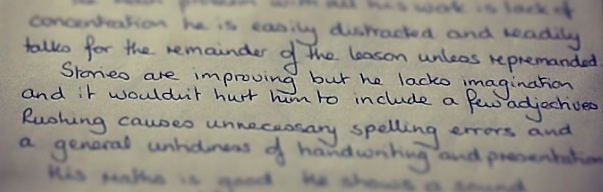 his work is lack of
concentration he is easily distracted and readily
talks for the remainder of the lesson unless repremanded.
Stories are improving but he lacks imagination
and it wouldn't hurt him to include a few adjectives
Rushing causes unnecessary spelling errors and
a general untidiness of handwriting and presentation
His maths is good He shows a sound